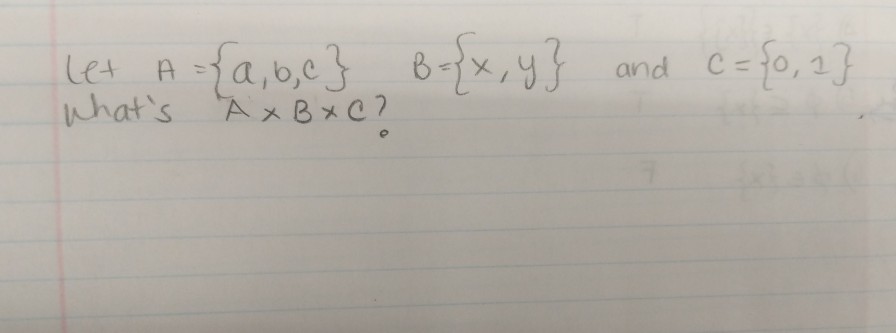 Let A = {a, b, c} B = {x, y} and C = {0, 1}
What's A × B × C?